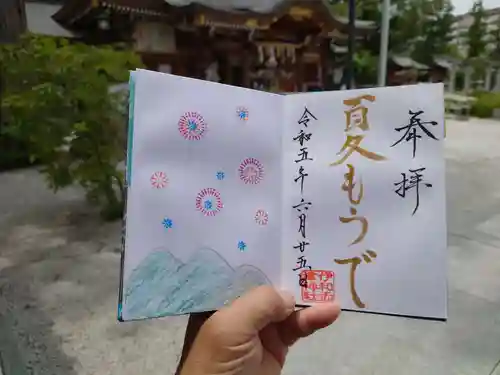 奉拝
夏もうで
令和五年六月廿五日